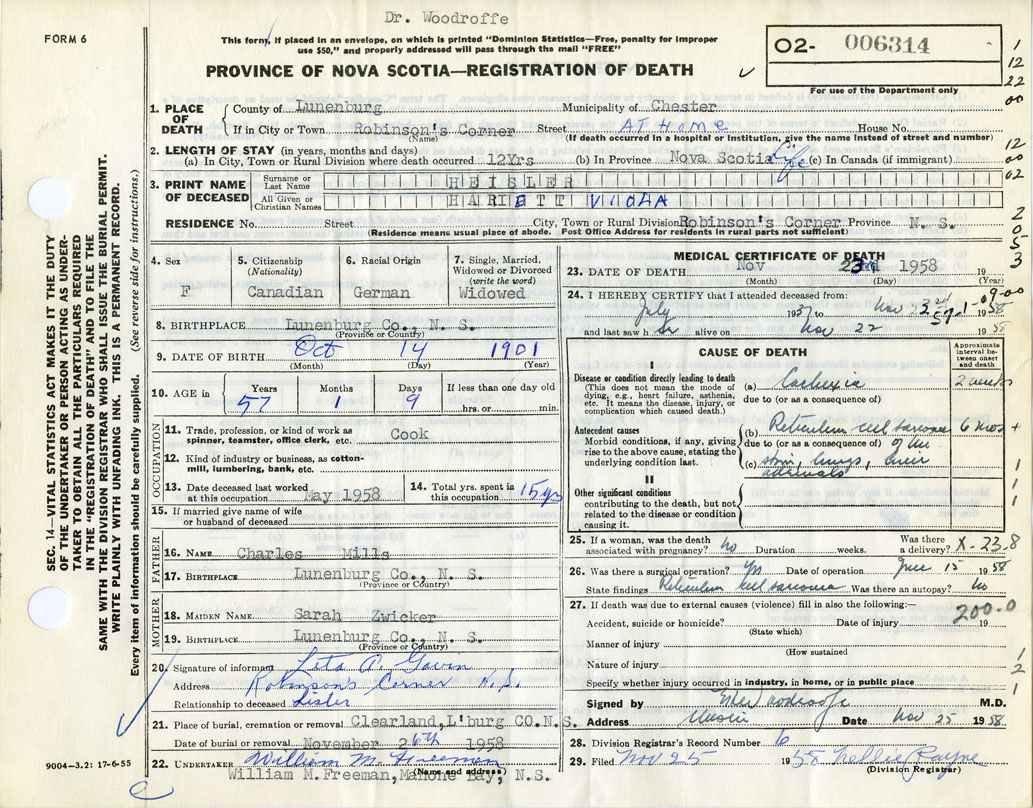 Dr. Woodroffe
FORM 6
This form, if placed in an envelope, on which is printed "Dominion Statistics—Free, penalty for improper
use $50," and properly addressed will pass through the mail "FREE"
PROVINCE OF NOVA SCOTIA—REGISTRATION OF DEATH
O2- 006314
For use of the Department only
1
12
22
00
12
02
2
0
5
3
SEC. 14—VITAL STATISTICS ACT MAKES IT THE DUTY
OF THE UNDERTAKER OR PERSON ACTING AS UNDER-
TAKER TO OBTAIN ALL THE PARTICULARS REQUIRED
IN THE "REGISTRATION OF DEATH" AND TO FILE THE
SAME WITH THE DIVISION REGISTRAR WHO SHALL ISSUE THE BURIAL PERMIT.
WRITE PLAINLY WITH UNFADING INK. THIS IS A PERMANENT RECORD.
Every item of information should be carefully supplied. (See reverse side for instructions.)
1. PLACE OF DEATH
County of Lunenburg Municipality of Chester
If in City or Town Robinson's Corner Street AT HOME House No.
(Name) (If death occurred in a hospital or Institution, give the name instead of street and number)
2. LENGTH OF STAY (in years, months and days)
(a) In City, Town or Rural Division where death occurred 12Yrs (b) In Province Nova Scotia Life (c) In Canada (if immigrant)
3. PRINT NAME OF DECEASED
Surname or Last Name HEISLER
All Given or Christian Names HARIETT VIOLA
RESIDENCE No. Street City, Town or Rural Division Robinson's Corner Province N. S.
(Residence means usual place of abode. Post Office Address for residents in rural parts not sufficient)
4. Sex F
5. Citizenship (Nationality) Canadian
6. Racial Origin German
7. Single, Married, Widowed or Divorced (write the word) Widowed
8. BIRTHPLACE Lunenburg Co., N. S.
(Province or Country)
9. DATE OF BIRTH Oct 14 1901
(Month) (Day) (Year)
10. AGE in Years 57 Months 1 Days 9 If less than one day old
hrs. or min.
OCCUPATION
11. Trade, profession, or kind of work as spinner, teamster, office clerk, etc. Cook
12. Kind of industry or business, as cotton-mill, lumbering, bank, etc.
13. Date deceased last worked at this occupation May 1958
14. Total yrs. spent in this occupation 15yrs
15. If married give name of wife or husband of deceased
FATHER
16. NAME Charles Mills
17. BIRTHPLACE Lunenburg Co., N. S.
(Province or Country)
MOTHER
18. MAIDEN NAME Sarah Zwicker
19. BIRTHPLACE Lunenburg Co., N. S.
(Province or Country)
20. Signature of informant Leta P. Gavin
Address Robinson's Corner N.S.
Relationship to deceased Sister
21. Place of burial, cremation or removal Clearland, L'burg CO.N.S.
Date of burial or removal November 26th 1958
22. UNDERTAKER William M. Freeman
(Name and address)
William M. Freeman, Mahone Bay, N.S.
9004-3.2: 17-6-55
MEDICAL CERTIFICATE OF DEATH
23. DATE OF DEATH Nov 23rd 1958 19
(Month) (Day) (Year)
24. I HEREBY CERTIFY that I attended deceased from:
July 1937 to Nov 23rd 1958
and last saw her alive on Nov 22 1958
CAUSE OF DEATH
Approximate interval between onset and death
I
Disease or condition directly leading to death
(This does not mean the mode of dying, e.g., heart failure, asthenia, etc. It means the disease, injury, or complication which caused death.)
(a) Cachexia 2 weeks
due to (or as a consequence of)
Antecedent causes
Morbid conditions, if any, giving rise to the above cause, stating the underlying condition last.
(b) Reticulum cell sarcoma 6 mos +
due to (or as a consequence of) of the
(c) skin, lungs, liver
adrenals
II
Other significant conditions
contributing to the death, but not related to the disease or condition causing it.
1
1
1
1
25. If a woman, was the death associated with pregnancy? No Duration weeks. Was there a delivery? X-23.8
26. Was there a surgical operation? Yes Date of operation June 15 1958
State findings Reticulum cell sarcoma Was there an autopsy? No
27. If death was due to external causes (violence) fill in also the following:— 200.0
Accident, suicide or homicide? Date of injury 19
(State which)
Manner of injury
(How sustained
Nature of injury
Specify whether injury occurred in industry, in home, or in public place
1
2
1
Signed by Woodroffe M.D.
Address Chester Date Nov 25 1958.
28. Division Registrar's Record Number 6
29. Filed Nov 25 1958 Nellie Rayne
(Division Registrar)